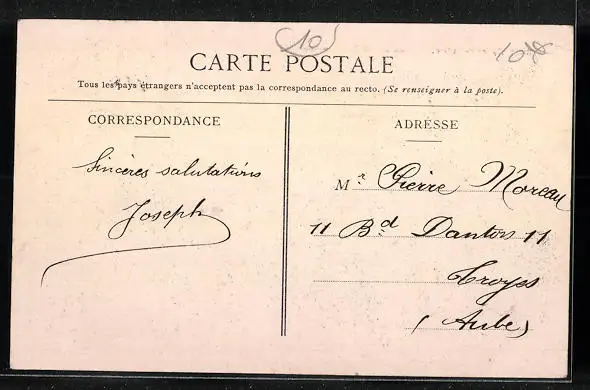 10
CARTE POSTALE
Tous les pays étrangers n'acceptent pas la correspondance au recto. (Se renseigner à la poste).
CORRESPONDANCE
ADRESSE
Sincères salutations
Joseph
Mr. Pierre Moreau
11 Bd Danton 11
Troyes
(Aube)